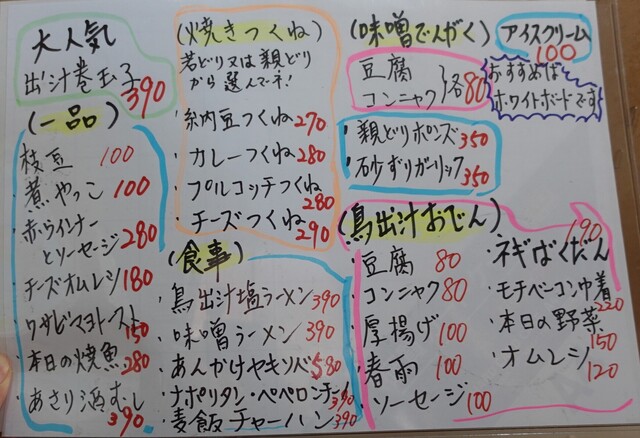 大人気
出汁巻玉子 390
(一品)
枝豆 100
・煮やっこ 100
・赤ウインナー
とソーセージ 280
・チーズオムレツ 180
・ワサビマヨトースト 150
・本日の焼魚 280
・あさり酒むし 390
(焼きつくね)
若どり又は親どり
から選んでネ!
・納豆つくね 270
・カレーつくね 280
・プルコッチつくね 280
・チーズつくね 290
(食事)
・鳥出汁塩ラーメン 390
・味噌ラーメン 390
・あんかけヤキソバ 580
・ナポリタン・ペペロンチーノ 390
・麦飯チャーハン 390
(味噌でんがく)
豆腐
コンニャク 各80
・親どりポンズ 350
・砂ずりガーリック 350
アイスクリーム
100
おすすめは
ホワイトボードです
(鳥出汁おでん)
・豆腐 80
・コンニャク 80
・厚揚げ 100
・春雨 100
・ソーセージ 100
・ネギばくだん 190
・モチベーコン巾着 220
・本日の野菜 150
・オムレツ 120